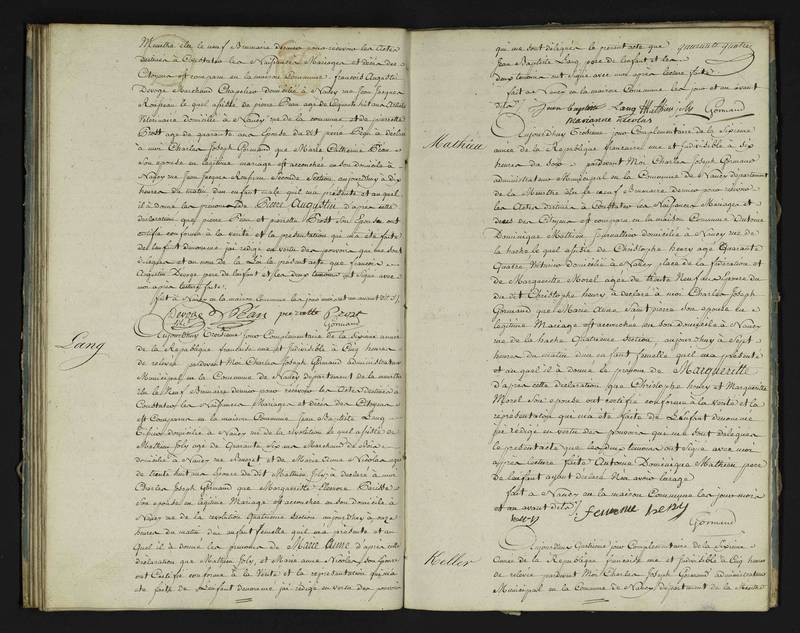 Meurthe élu le neuf Brumaire dernier pour recevoir les Actes
destinés à Constater les Naissances Mariages et décès des
Citoyens est comparu en la maison Commune françois Augustin
Devoge Marchand Chapelier domicilié à Nancy rue Jean Jacques
Rousseau le quel assisté de pierre Péan agé de Cinquante huit ans Artiste
Vétérinaire domicilié à Nancy rue de la commune et de pierrette
Prost agée de quarante ans Epouse du dit pierre Péan à déclaré
à moi Charles Joseph Gormand que Marie Catherine
Son épouse en légitime mariage est accouchée en son domicile à
Nancy rue Jean Jacques Rousseau Seconde Section aujourd'huy à Dix
heures du matin d'un enfant male quil ma présenté et au quel
il à donné les prenoms de Pierre Augustin d'après cette
déclaration que pierre Péan et pierrette Prost Son Epouse ont
certifié conforme à la vérité et la présentation qui ma été faite
de l'enfant dénommé jai rédigé en vertu des pouvoirs qui me sont
délégués et au nom de la Loi le present acte que françois
Augustin Devoge pere de lenfant et les deux temoins ont Signé avec
moi après lecture faite
fait à Nancy en la maison Commune les jour mois et an avant dits
Devoge Péan pierrette Prost
Gormand
Lang
Aujourdhuy Troisieme jour Complementaire de la Sixieme année
de la Republique francaise une et Indivisible à Cinq heures
de relevée pardevant Moi Charles Joseph Gormand administrateur
Municipal en la Commune de Nancy departement de la meurthe
élu le Neuf Brumaire dernier pour recevoir les Actes destinés à
Constater les Naissances Mariages et décès des Citoyens
est Comparu en la maison Commune Jean Baptiste Lang
domicilié à Nancy rue de la révolution le quel assisté de
Mathieu Joly agé de Quarante Six ans Marchand de Bois
domicilié à Nancy rue et de Marie Anne Nicolas agée
de trente huit ans Epouse du dit Mathieu Joly à déclaré à moi
Charles Joseph Gormand que Margueritte
Son epouse en légitime Mariage est accouchée en son domicile à
Nancy rue de la revolution Quatrieme Section aujourdhuy à onze
heures du matin d'un enfant femelle quil ma présenté et au
Quel il à donné les prenoms de Marie Anne d'après cette
déclaration que Mathieu Joly et Marie anne Nicolas son Epouse
ont Certifié conforme à la Vérité et la représentation qui m'a
été faite de l'enfant dénommé jai redigé en vertu des pouvoirs
qui me sont délégués le present acte que
quarante quatre
Jean Baptiste Lang pere de lenfant et les
deux temoins ont Signé avec moi apres lecture faite
fait à Nancy en la maison Commune les jour et an avant
dits
Jean Baptiste Lang Mathieu Joly Gormand
marianne nicolas
Mathieu
Aujourdhuy Troisieme jour Complementaire de la Sixieme
année de la Republique francaise une et Indivisible à Six
heures du Soir pardevant Moi Charles Joseph Gormand
administrateur Municipal en la Commune de Nancy departement
de la Meurthe élu le neuf Brumaire dernier pour recevoir
les Actes destinés à Constater les Naissances Mariages et
deces des Citoyens est comparu en la maison Commune Antoine
Dominique Mathieu Journallier domicilié à Nancy rue de
la hache le quel assisté de Christophe henry agé Quarante
Quatre domicilié à Nancy place de la fédération et
de Marguerite Morel agée de trente Neuf ans Epouse du
dit Christophe henry à déclaré à moi Charles Joseph
Gormand que Marie Anne son épouse en
légitime Mariage est accouchée en son domicile à Nancy
rue de la hache Quatrieme Section aujourdhuy à Sept
heures du matin d'un enfant femelle quil ma présenté
et au quel il à donné le prenom de Margueritte
d'après cette déclaration que Christophe henry et Margueritte
Morel Son epouse ont certifié conforme à la Verité et la
représentation qui m'a été faite de l'enfant dénommé
jai rédigé en vertu des pouvoirs qui me sont délégués
le present acte que les deux temoins ont Signé avec moi
apres lecture faite Antoine Dominique Mathieu pere
de lenfant ayant declaré n'en avoir lusage
fait à Nancy en la maison Commune les jour mois
et an avant dits
femme heny
henry
Gormand
Keller
Aujourdhuy Quatrieme jour Complementaire de la Sixieme
Année de la Republique francaise une et Indivisible à Cinq heures
de relevée pardevant Moi Charles Joseph Gormand administrateur
Municipal en la Commune de Nancy departement de la Meurthe